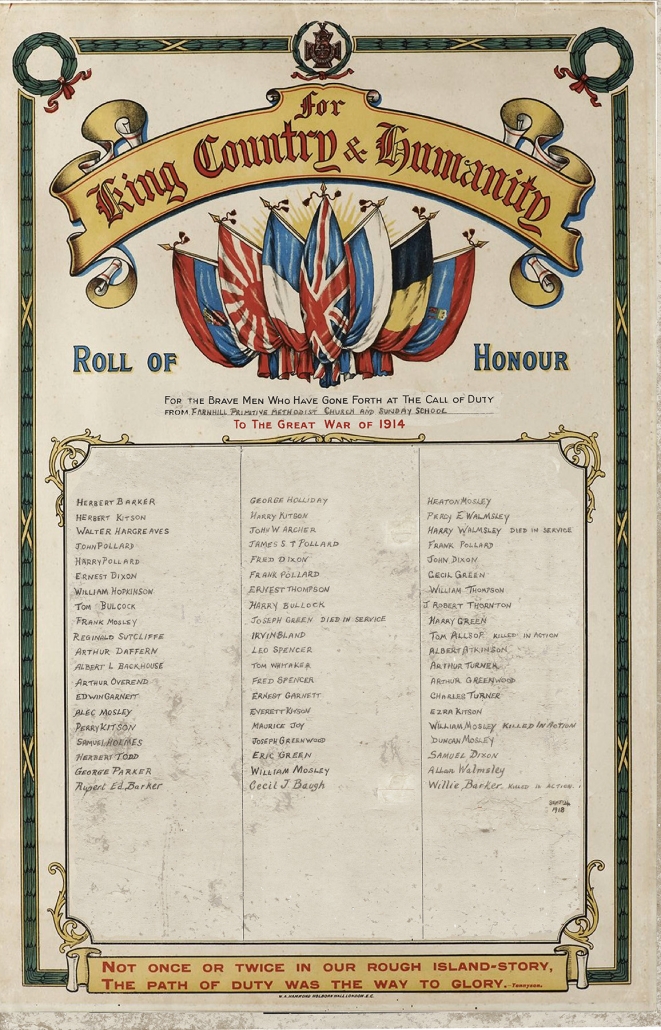 For
King Country & Humanity
ROLL OF HONOUR
FOR THE BRAVE MEN WHO HAVE GONE FORTH AT THE CALL OF DUTY
FROM FARNHILL PRIMITIVE METHODIST CHURCH AND SUNDAY SCHOOL
TO THE GREAT WAR OF 1914
HERBERT BARKER
HERBERT KITSON
WALTER HARGREAVES
JOHN POLLARD
HARRY POLLARD
ERNEST DIXON
WILLIAM HOPKINSON
TOM BULCOCK
FRANK MOSLEY
REGINALD SUTCLIFFE
ARTHUR DAFFERN
ALBERT L BACKHOUSE
ARTHUR OVEREND
EDWIN GARNETT
ALEC MOSLEY
PERRY KITSON
SAMUEL HOLMES
HERBERT TODD
GEORGE PARKER
Rupert Ed. Barker
GEORGE HOLLIDAY
HARRY KITSON
JOHN W ARCHER
JAMES S T POLLARD
FRED DIXON
FRANK POLLARD
ERNEST THOMPSON
HARRY BULLOCK
JOSEPH GREEN DIED IN SERVICE
IRVIN BLAND
LEO SPENCER
TOM WHITAKER
FRED SPENCER
ERNEST GARNETT
EVERETT KITSON
MAURICE JOY
JOSEPH GREENWOOD
ERIC GREEN
WILLIAM MOSLEY
Cecil J. Baugh
HEATON MOSLEY
PERCY E WALMSLEY
HARRY WALMSLEY DIED IN SERVICE
FRANK POLLARD
JOHN DIXON
CECIL GREEN
WILLIAM THOMPSON
J ROBERT THORNTON
HARRY GREEN
TOM ALLSOP KILLED IN ACTION
ALBERT ATKINSON
ARTHUR TURNER
ARTHUR GREENWOOD
CHARLES TURNER
EZRA KITSON
WILLIAM MOSLEY KILLED IN ACTION
DUNCAN MOSLEY
SAMUEL DIXON
Allan Walmsley
Willie Barker. KILLED IN ACTION.
1918
NOT ONCE OR TWICE IN OUR ROUGH ISLAND-STORY,
THE PATH OF DUTY WAS THE WAY TO GLORY.-Tennyson.
W. A. HAMMOND HOLBORN HALL LONDON E.C.